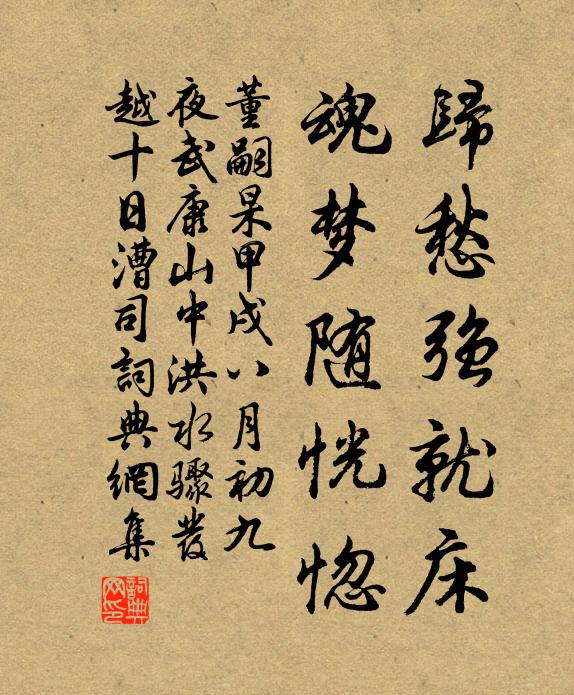 歸愁強就床
魂梦随恍惚
董嗣杲甲戌八月初九
夜武康山中洪水驟發
越十日漕司詞典網集
詞典
网印